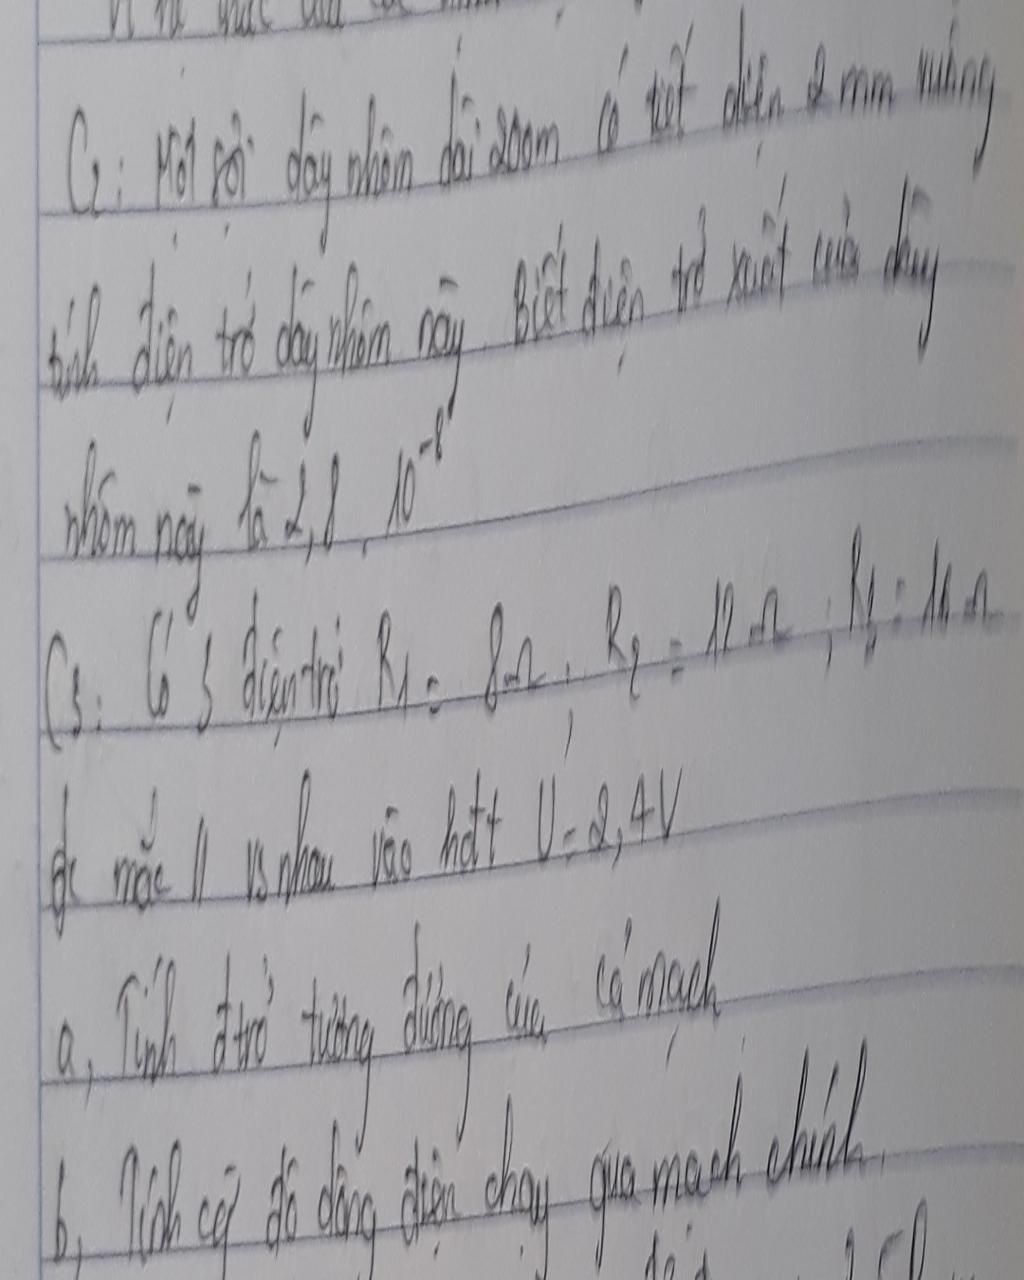 C2: Một sợi dây nhôm dài 200m có tiết diện 2 mm vuông
tính điện trở dây nhôm này Biết điện trở xuất của dây
nhôm này là 2,8 . 10⁻⁸
C3: Có 3 điện trở R1 = 8Ω ; R2 = 12Ω ; R3 = 16Ω
đc mắc // vs nhau vào hđt U = 2,4V
a, Tính đ trở tương đương của cả mạch
b, Tính cg độ dòng điện chạy qua mạch chính.